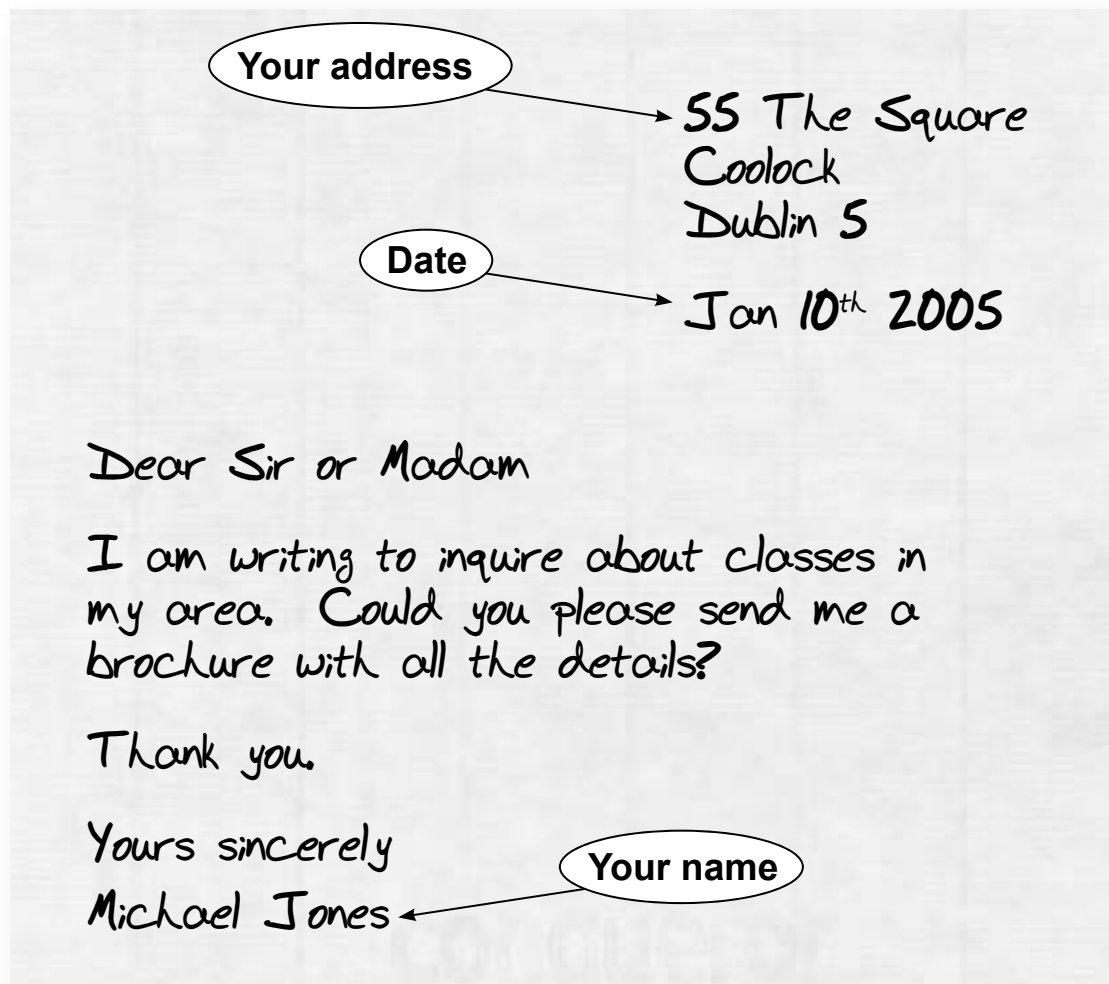 Your address
55 The Square
Coolock
Dublin 5
Date
Jan 10th 2005
Dear Sir or Madam
I am writing to inquire about classes in
my area. Could you please send me a
brochure with all the details?
Thank you.
Yours sincerely
Your name
Michael Jones